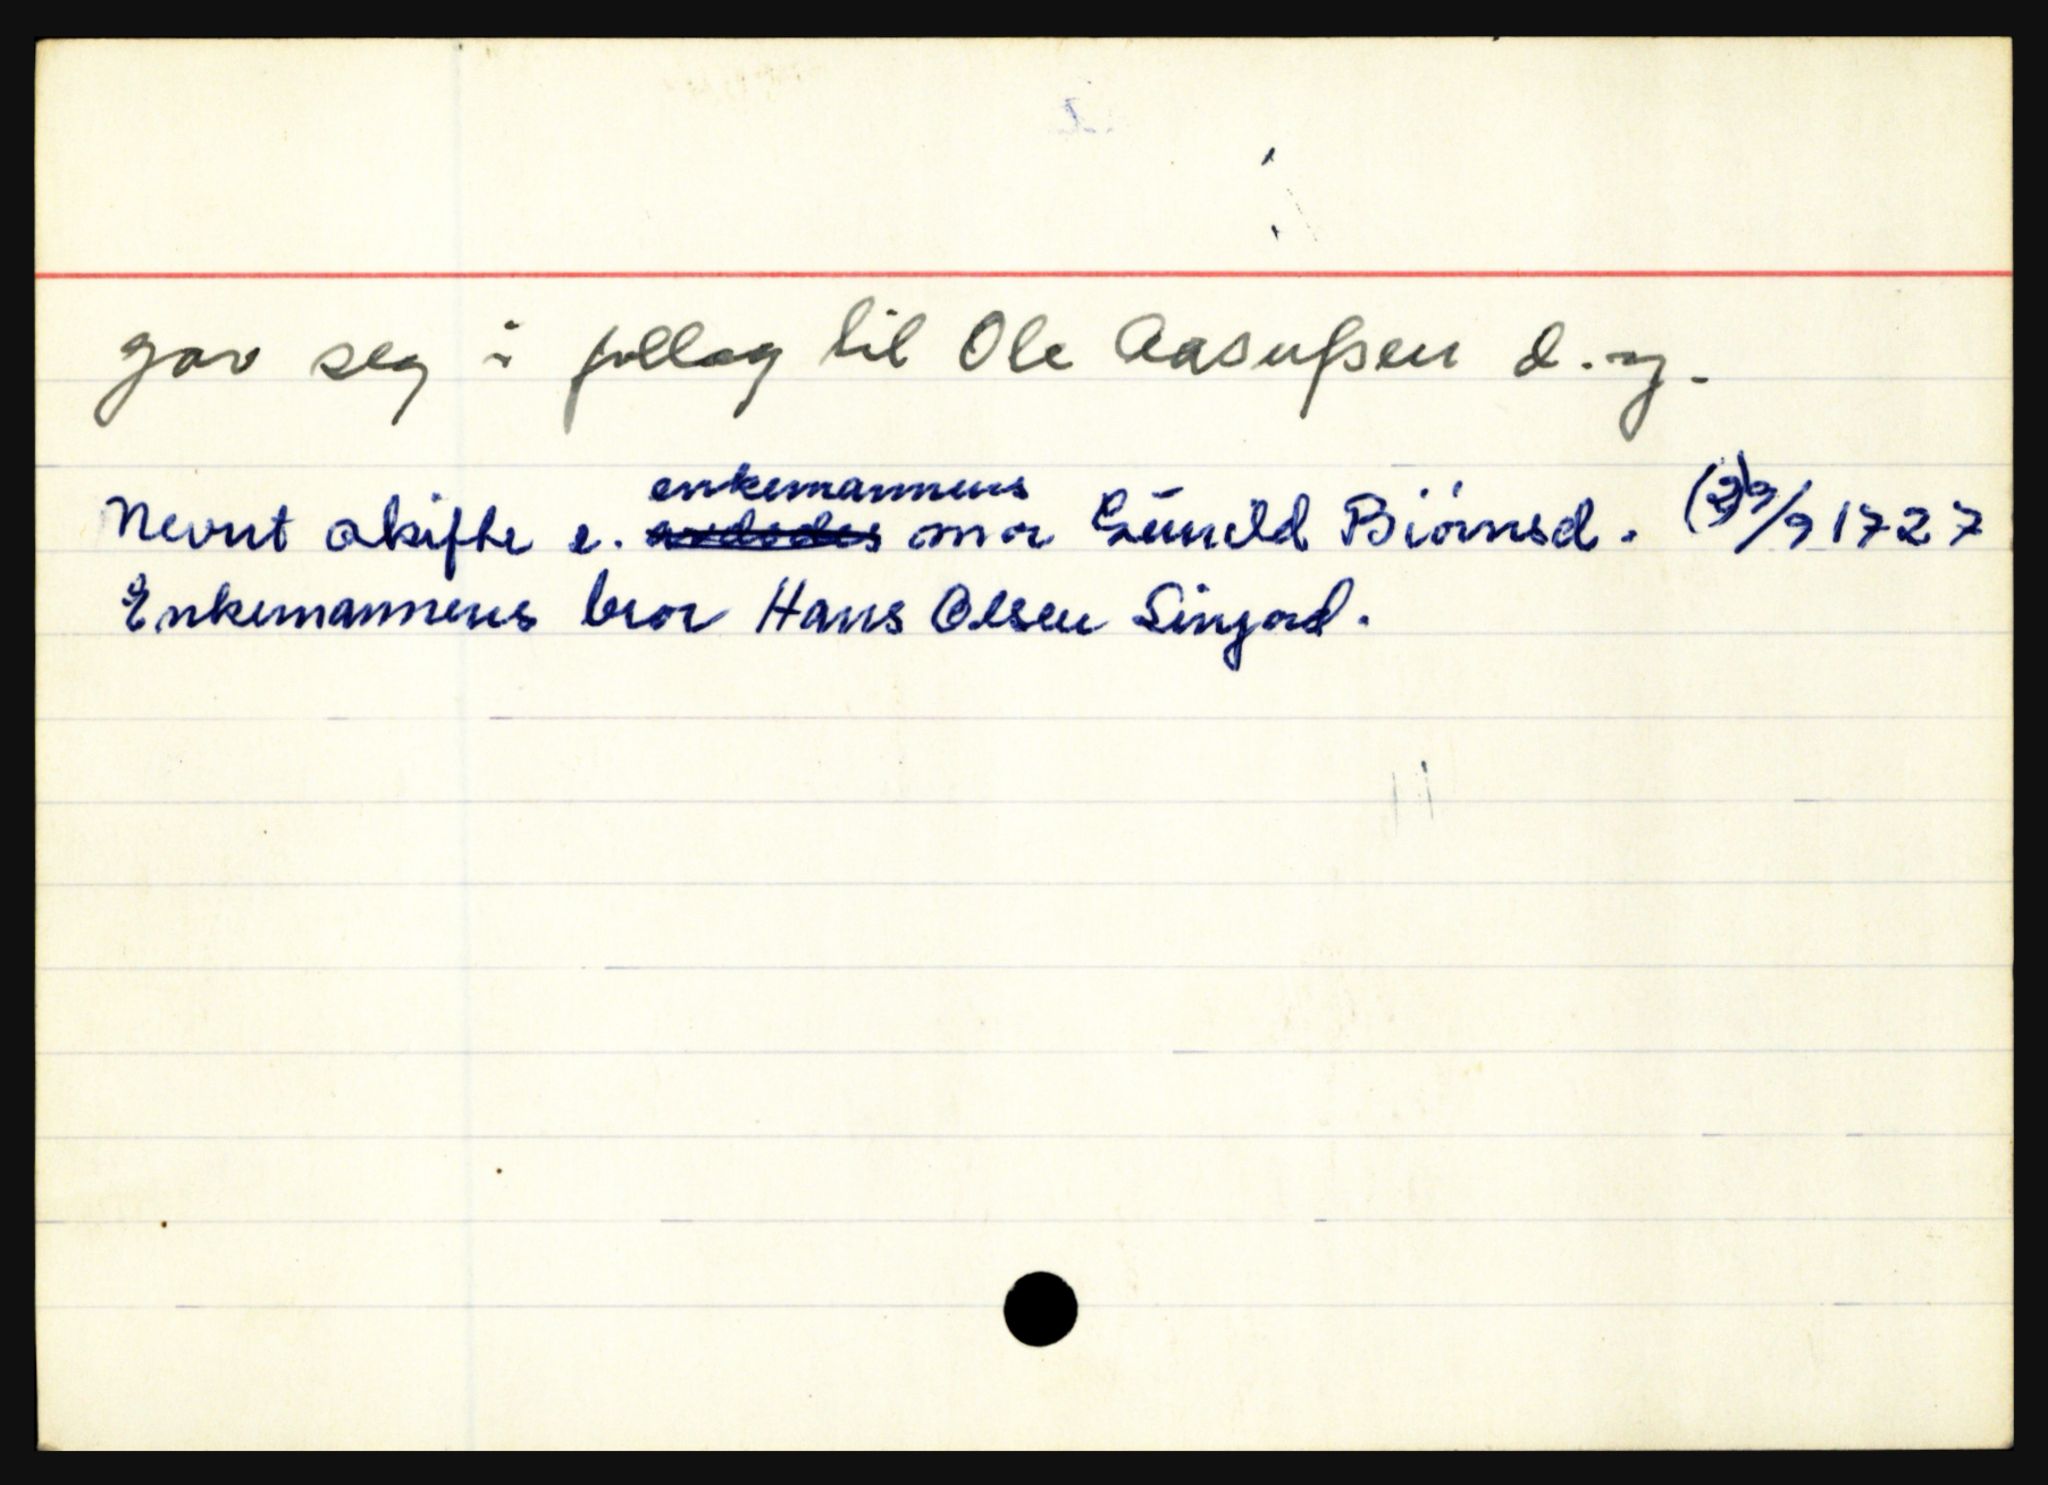 gav seg i follog til Ole Aasufsen d. y.
Nevnt skifte e. enkemannens mor Gunild Biørnsd. 1727
Enkemannens bror Hans Olsen Lingod.